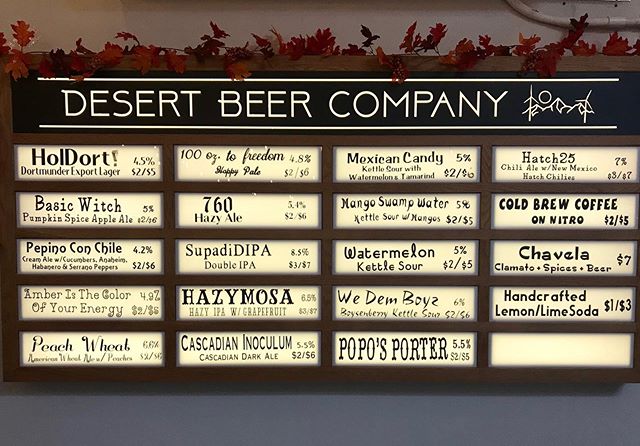 DESERT BEER COMPANY
HolDort! 4.5%
Dortmunder Export Lager $2/$5
Basic Witch 5%
Pumpkin Spice Apple Ale $2/$6
Pepino Con Chile 4.2%
Cream Ale w/Cucumbers, Anaheim,
Habanero & Serrano Peppers $2/$6
Amber Is The Color 4.9%
Of Your Energy $2/$5
Peach Wheat 6.6%
American Wheat Ale w/ Peaches $2/$6
100 oz. to freedom 4.8%
Hoppy Pale $2/$6
760 5.4%
Hazy Ale $2/$6
SupadiDIPA 8.5%
Double IPA $3/$7
HAZYMOSA 6.5%
HAZY IPA W/ GRAPEFRUIT $3/$7
CASCADIAN INOCULUM 5.5%
CASCADIAN DARK ALE $2/$6
Mexican Candy 5%
Kettle Sour with
Watermelon & Tamarind $2/$6
Mango Swamp Water 5%
Kettle Sour w/Mangos $2/$5
Watermelon 5%
Kettle Sour $2/$5
We Dem Boyz 6%
Boysenberry Kettle Sour $2/$6
POPO'S PORTER 5.5%
$2/$5
Hatch25 7%
Chili Ale w/New Mexico
Hatch Chilies $3/$7
COLD BREW COFFEE
ON NITRO $2/$5
Chavela $7
Clamato + Spices + Beer
Handcrafted
Lemon/Lime Soda $1/$3